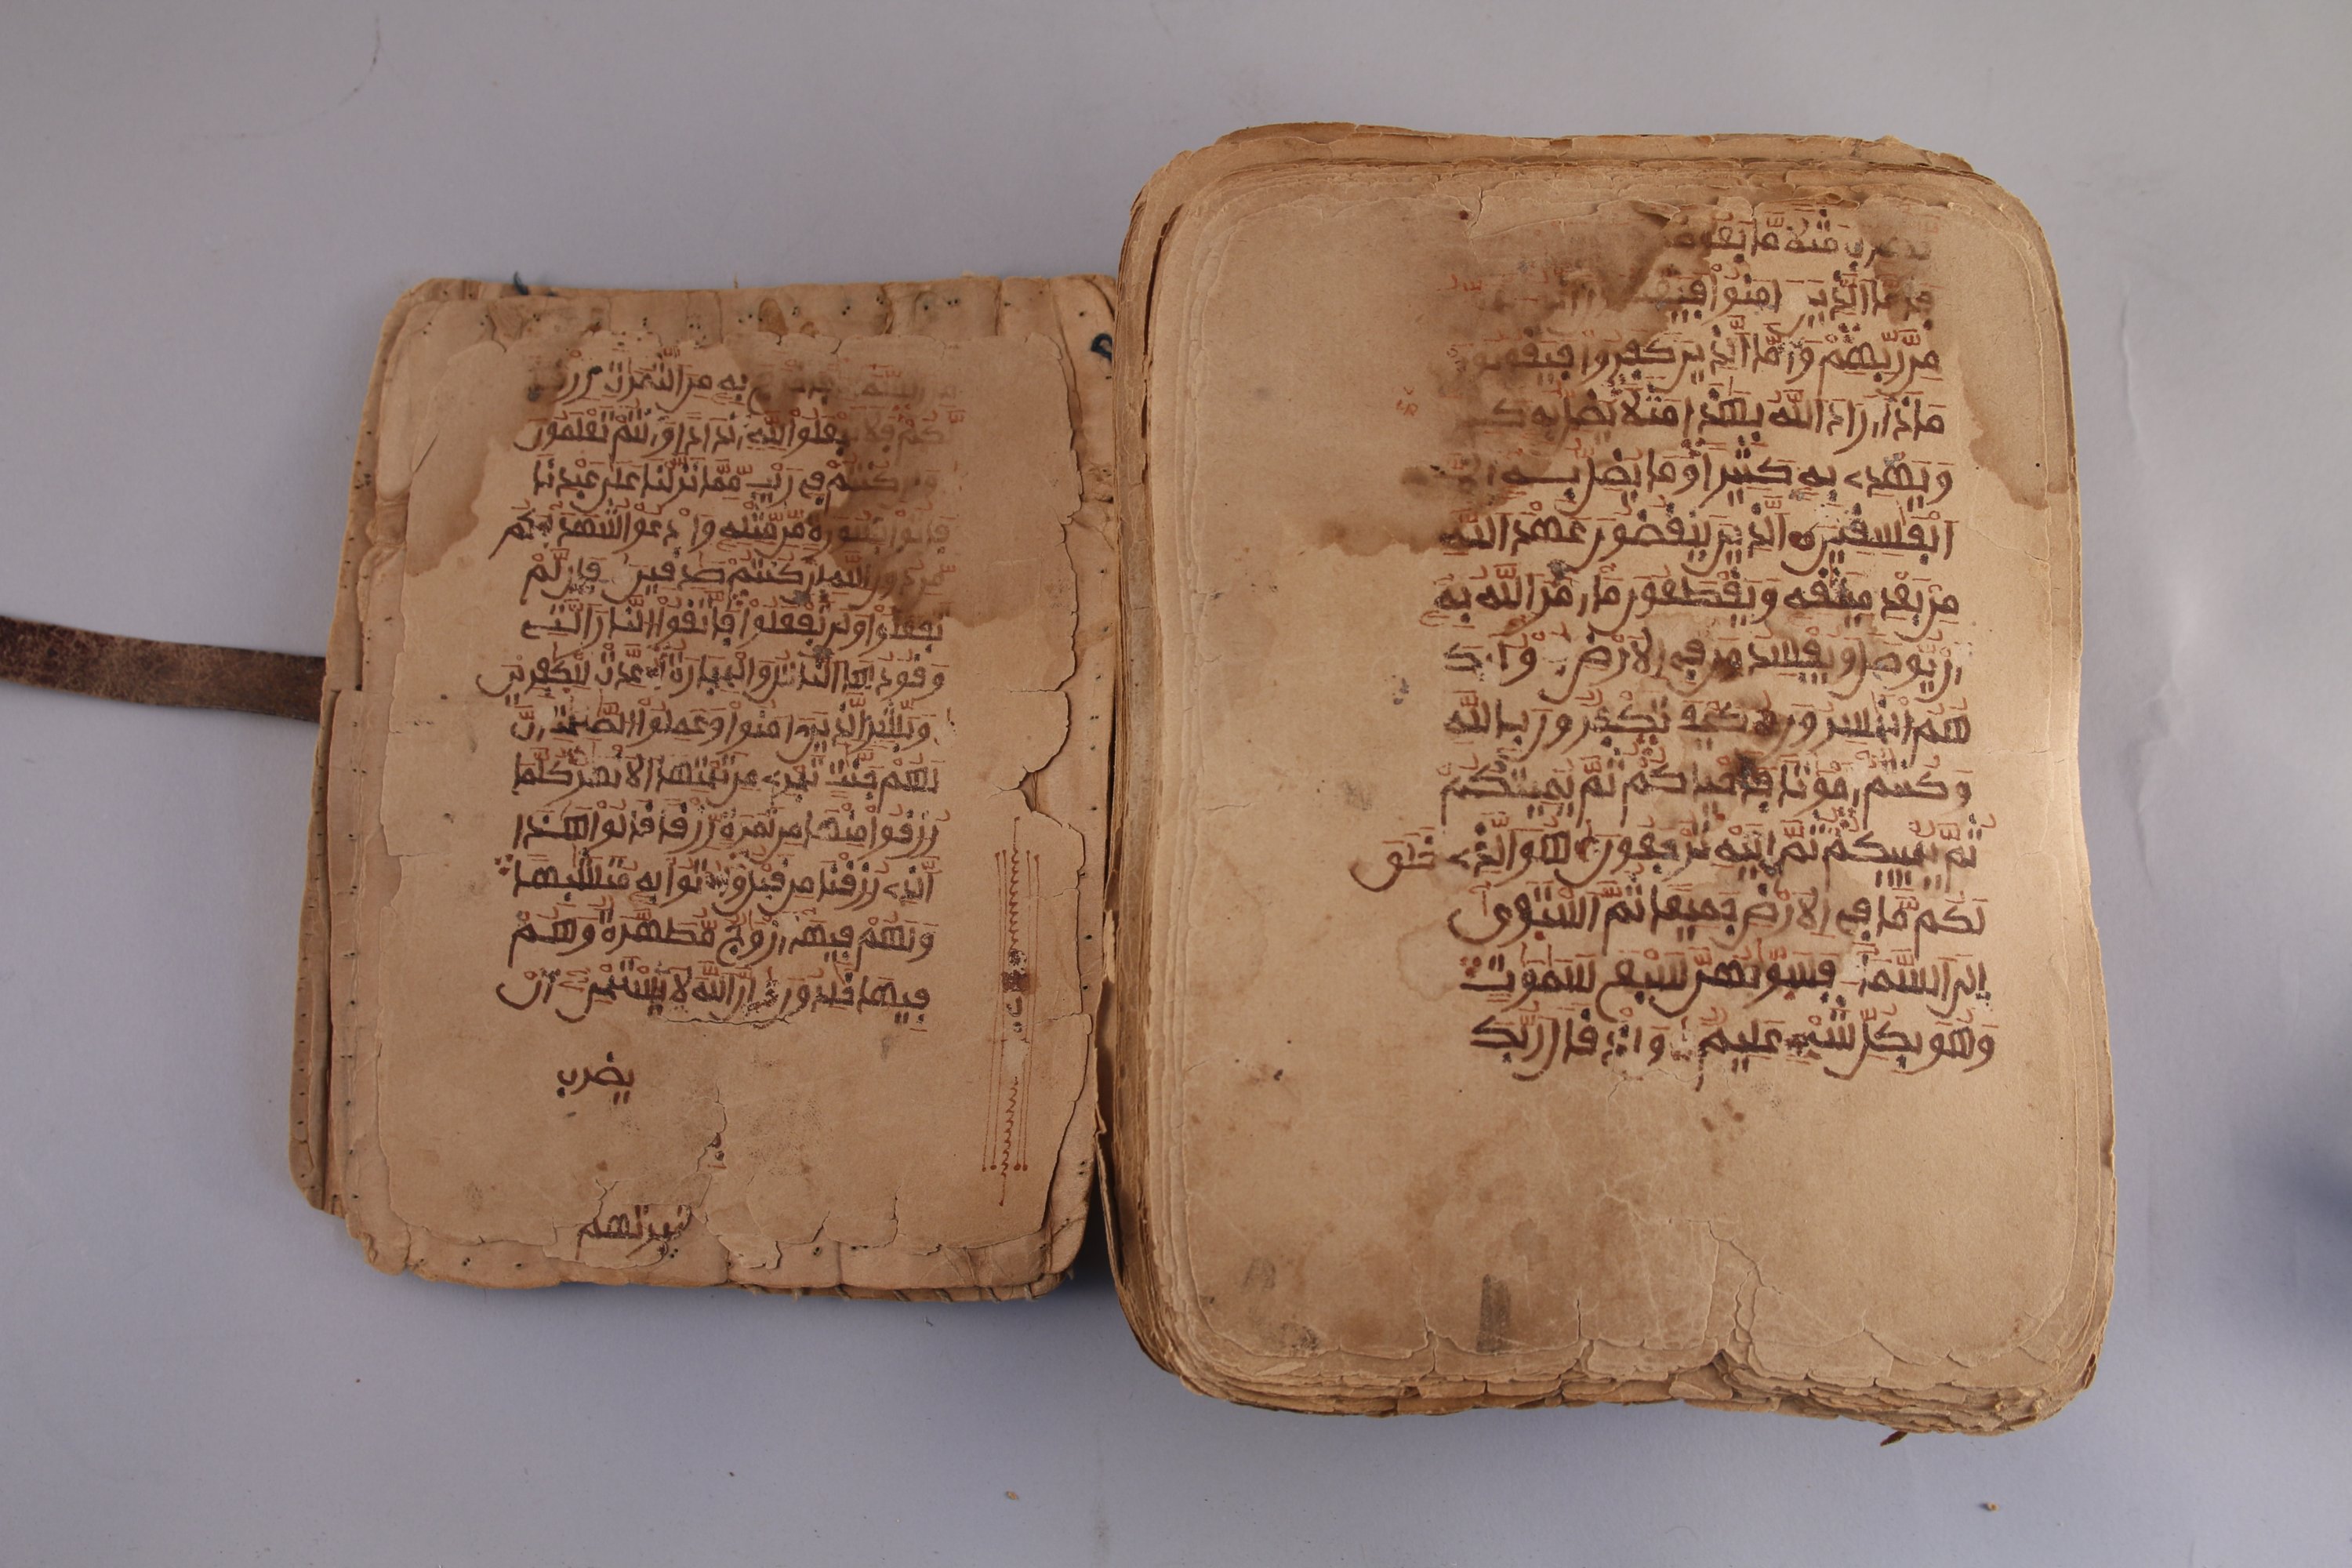 به من الثمرت رز
لكم فلا تجعلوا لله اندادا وانتم تعلمون
كنتم في ريب مما نزلنا على عبدنا
فاتوا بسورة من مثله وادعوا شهداءكم
من دون الله ان كنتم صدقين فان لم
تفعلوا ولن تفعلوا فاتقوا النار التي
وقودها الناس والحجارة اعدت للكفرين
وبشر الذين امنوا وعملوا الصلحت ان
لهم جنت تجري من تحتها الانهر كلما
رزقوا منها من ثمرة رزقا قالوا هذا
الذي رزقنا من قبل واتوا به متشبها
ولهم فيها ازوج مطهرة وهم
فيها خلدون ان الله لا يستحي ان
يضرب
يضرب مثلا ما بعوضة
فاما الذين امنوا فيعلمون
من ربهم واما الذين كفروا فيقولون
ماذا اراد الله بهذا مثلا يضل به كـ
ويهدي به كثيرا وما يضل به الا
الفسقين الذين ينقضون عهد الله
من بعد ميثقه ويقطعون ما امر الله به
ان يوصل ويفسدون في الارض اولئك
هم الخسرون كيف تكفرون بالله
وكنتم اموتا فاحيكم ثم يميتكم
ثم يحييكم ثم اليه ترجعون هو الذي خلق
لكم ما في الارض جميعا ثم استوى
الى السماء فسويهن سبع سموت
وهو بكل شيء عليم واذ قال ربك